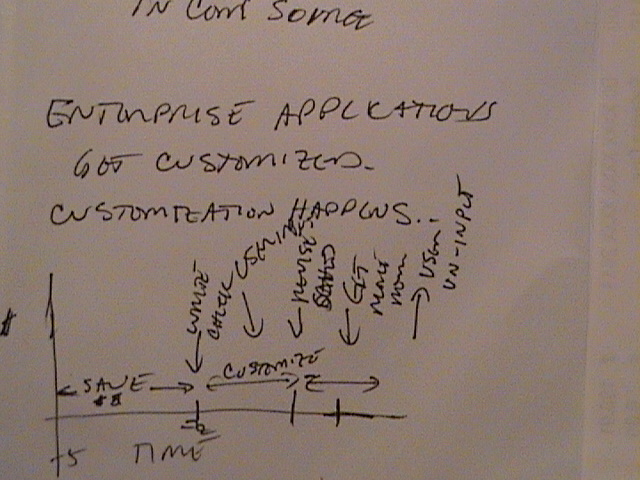 IN COM SOURCE
ENTERPRISE APPLICATIONS
GET CUSTOMIZED.
CUSTOMIZATION HAPPENS..
WRITE
CHECK
USER IN
REVISE
GET
MORE
USER
UN-INPUT
$
SAVE
$$
CUSTOMIZE
TIME
-5